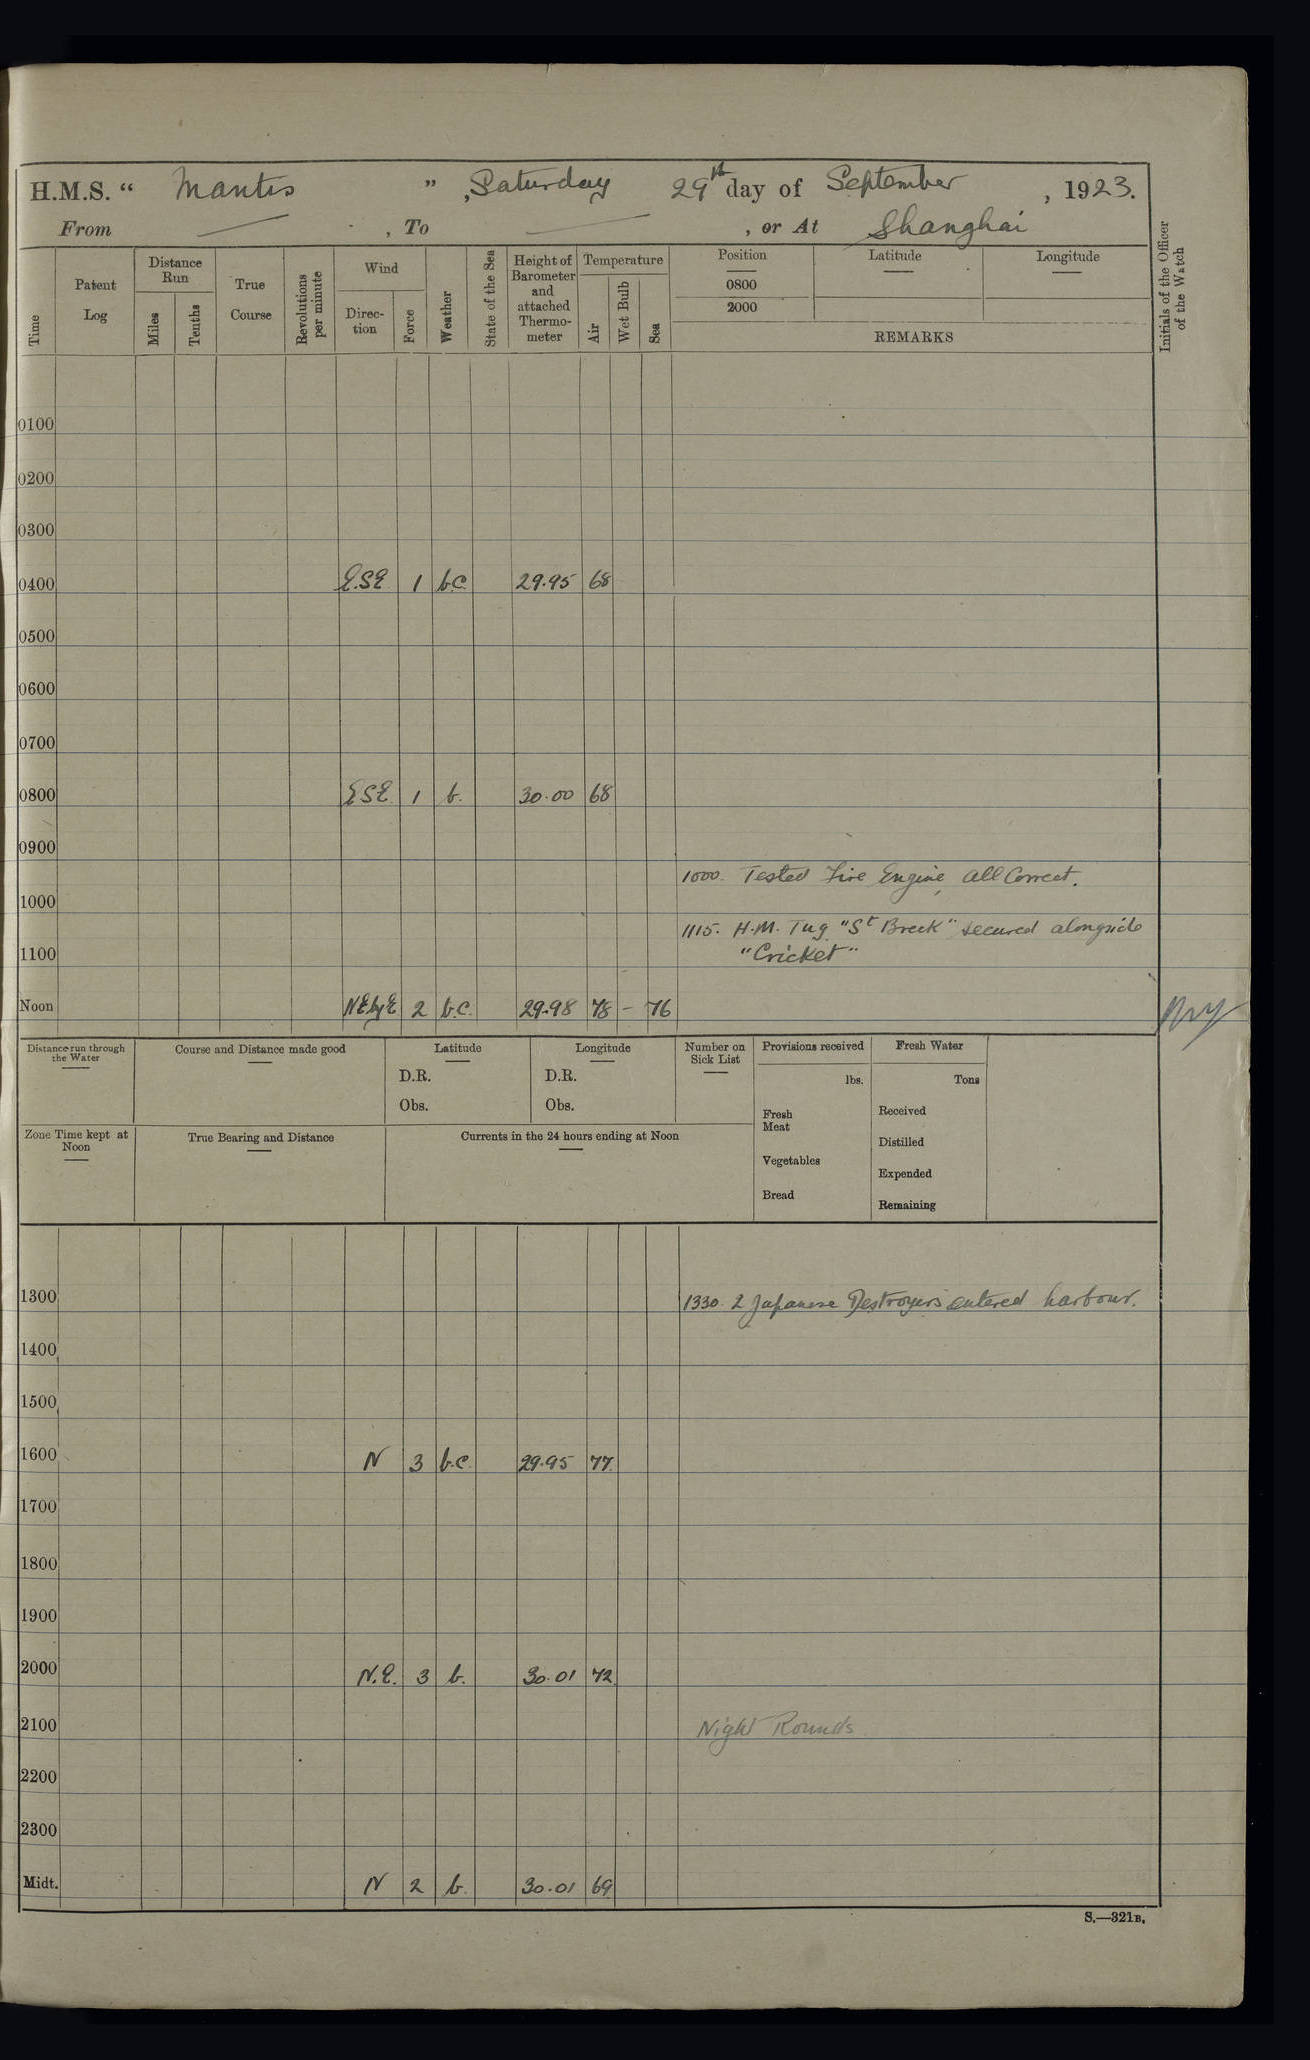 H.M.S. “ Mantis ”, Saturday 29th day of September, 1923.
From — , To — , or At Shanghai
Time
Patent Log
Distance Run
Miles
Tenths
True Course
Revolutions per minute
Wind
Direc-tion
Force
Weather
State of the Sea
Height of Barometer and attached Thermo-meter
Temperature
Air
Wet Bulb
Sea
Position
0800
2000
Latitude
Longitude
REMARKS
Initials of the Officer of the Watch
0100
0200
0300
0400 E.S.E 1 b.c. 29.95 68
0500
0600
0700
0800 E S E. 1 b. 30.00 68
0900
1000. Tested Fire Engine, all Correct.
1000
1115. H.M. Tug "St Breck" secured alongside
"Cricket"
1100
Noon NEbyE 2 b.c. 29.98 78 - 76
Distance run through the Water
Course and Distance made good
Latitude
D.R.
Obs.
Longitude
D.R.
Obs.
Number on Sick List
Provisions received
lbs.
Fresh Meat
Vegetables
Bread
Fresh Water
Tons
Received
Distilled
Expended
Remaining
Zone Time kept at Noon
True Bearing and Distance
Currents in the 24 hours ending at Noon
1300
1330. 2 Japanese Destroyers entered harbour.
1400
1500
1600 N 3 b.c. 29.95 77.
1700
1800
1900
2000 N.E. 3 b. 30.01 72
2100 Night Rounds
2200
2300
Midt. N 2 b. 30.01 69
S.—321B.